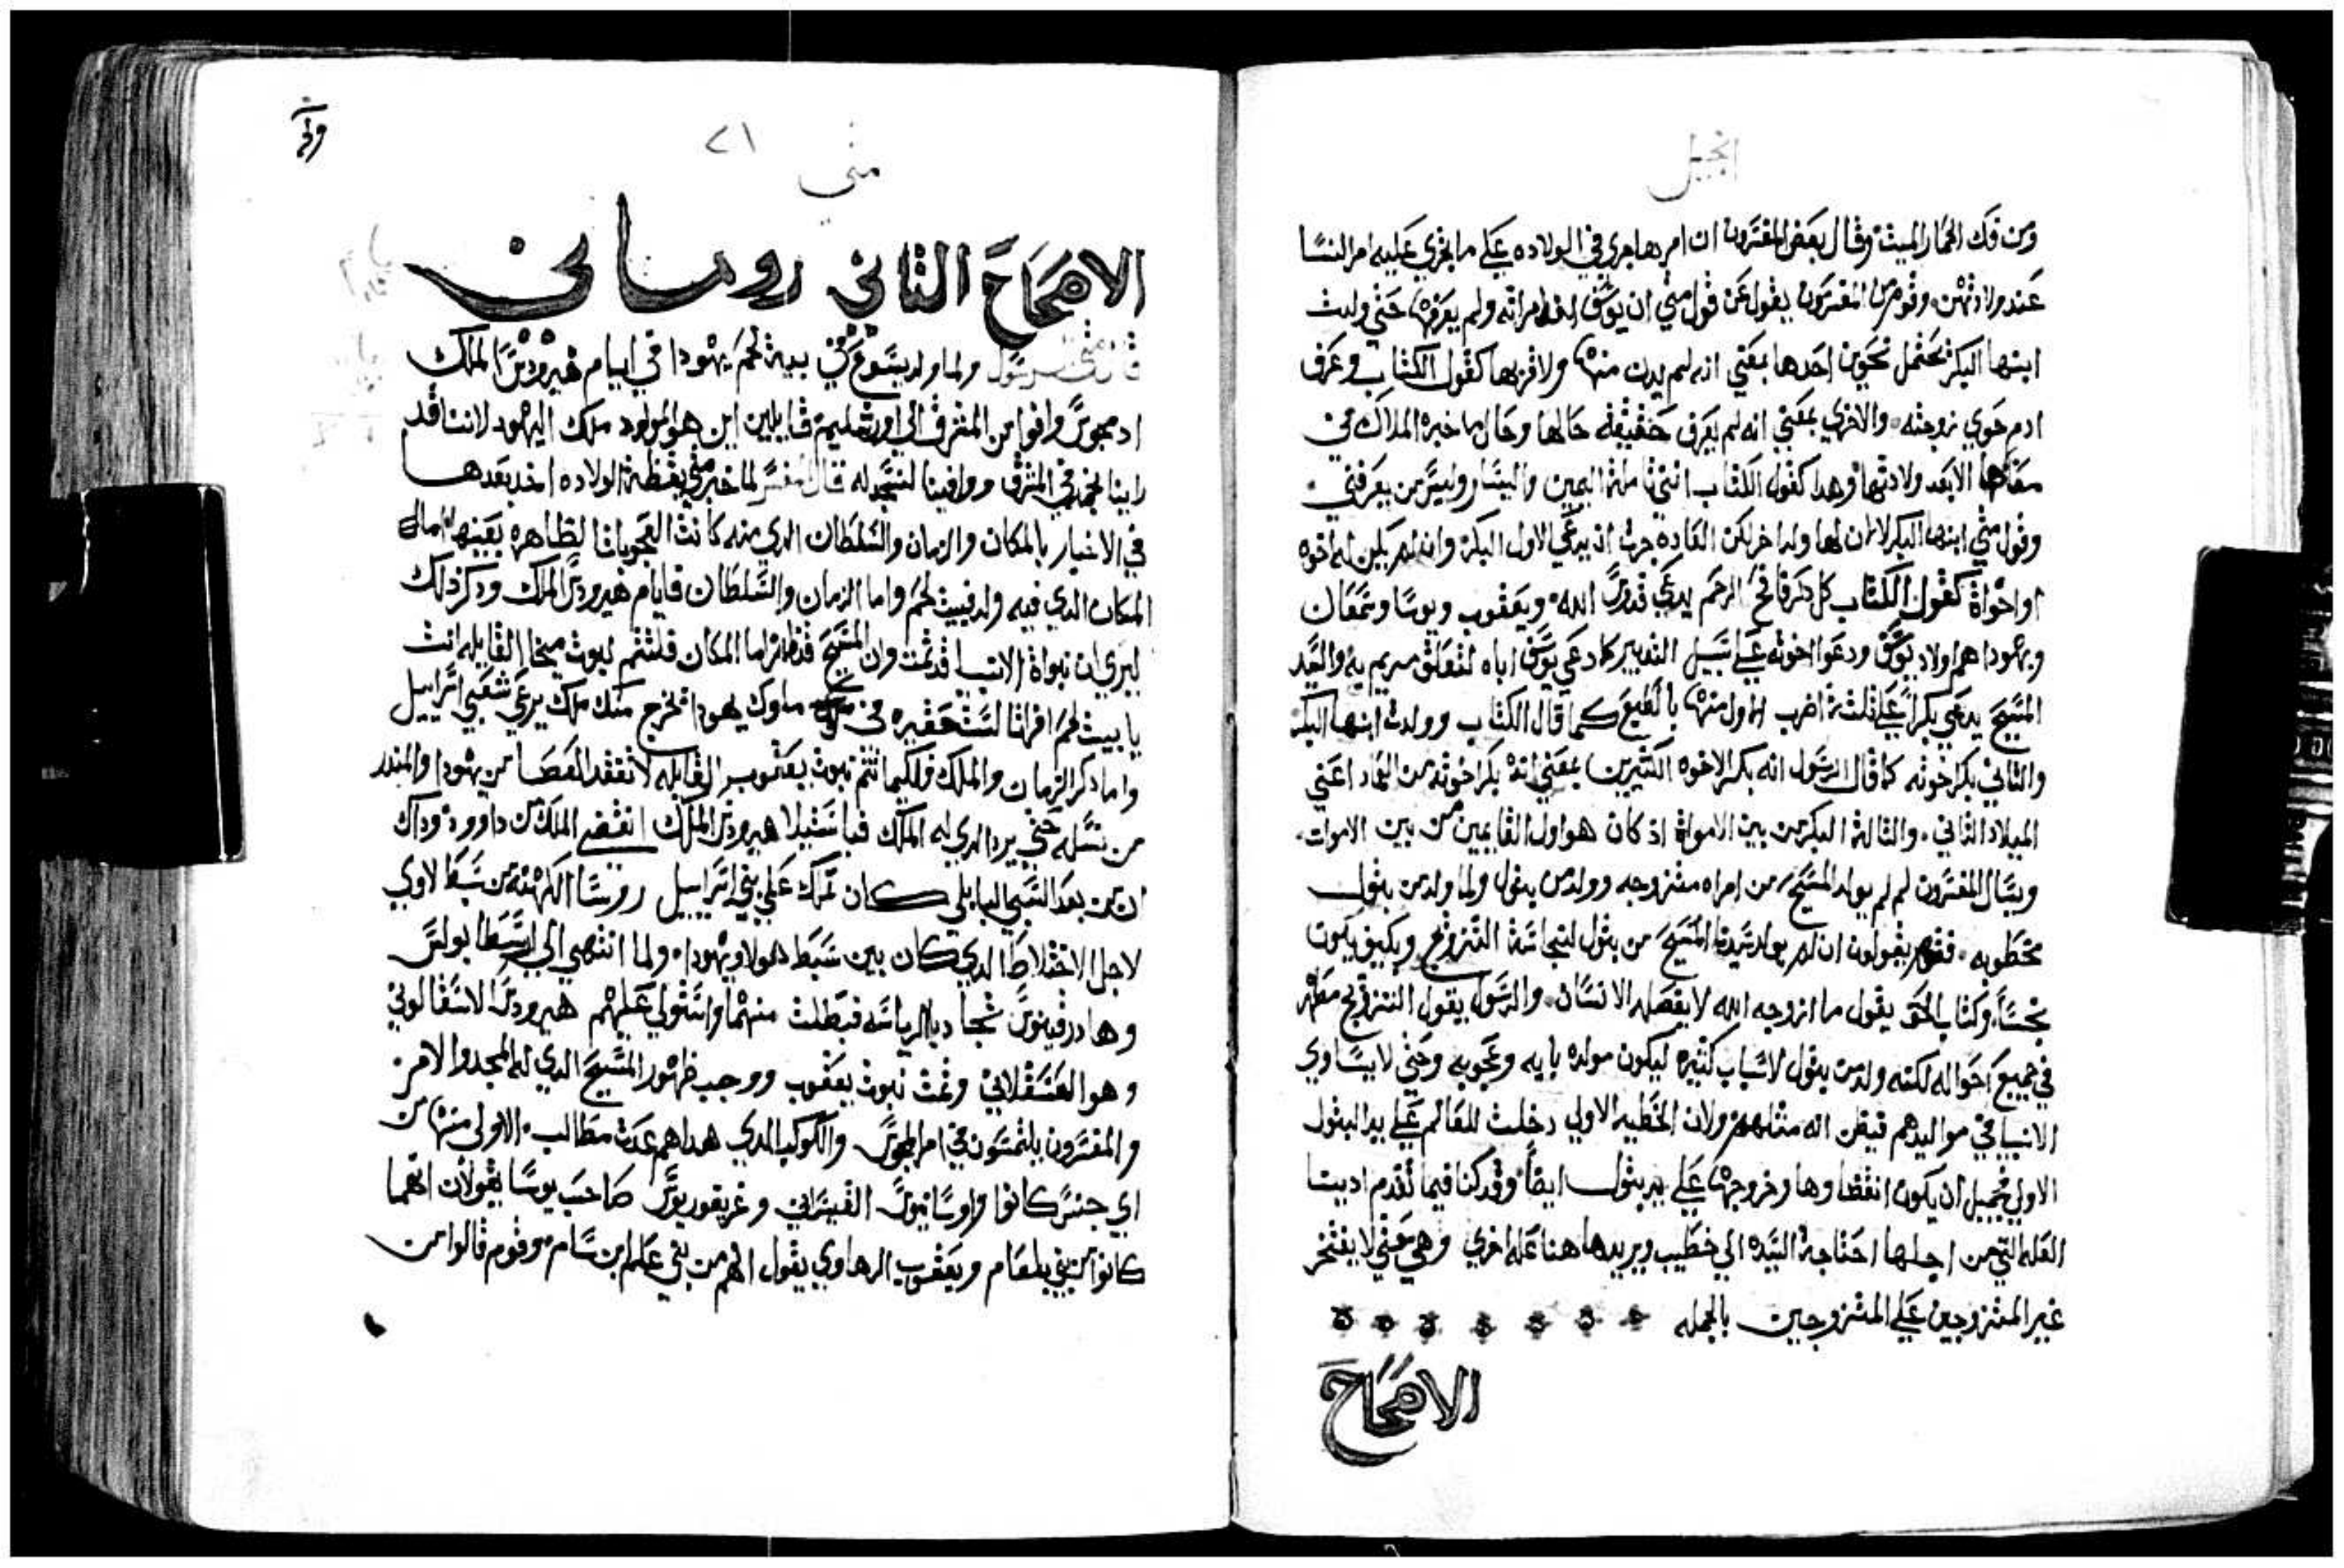 انجيل
ومن فك الحمار الميت وقال بعض المفسرون ان امرها جري في الولاده علي ما يجري عليه امر النسا
عند ولادتهن وقوم من المفسرون يقول عن قول متي ان يوسف اخد امراته ولم يعرفها حتي ولدت
ابنها البكر يحتمل نحوين احدها بمعني انه لم يدن منها ولا قربها كقول الكتاب وعرف
ادم حوي زوجته والاخري بمعني انه لم يعرف حقيقة حالها وحال ما خبره الملاك في
معناها الا بعد ولادتها وهدا كقول الكتاب انني تاملة اليمين واليسار وليس من يعرفني
وقول متي ابنها البكر لا ان لها ولدا اخر لكن العادة جرت ان يدعي الاول البكر وان لم يكن له اخوه
او اخواة كقول الكتاب كل دكر فاتح الرحم يدعي قدوس الله ويعقوب ويوسا وسمعان
ويهودا هم اولاد يوسف ودعوا اخوته علي سبيل التدبير كما دعي يوسف اباه لتعلق مريم به والسيد
المسيح يدعي بكراً علي ثلثة اضرب الاول منها بالطبع كما قال الكتاب وولدت ابنها البكر
والثاني بكر اخوته كما قال الرسول انه بكر الاخوه الكتيرين بمعني انه بكر اخوته من العماد اعني
الميلاد الثاني والثالثة البكر من بين الامواة اذ كان هو اول القايمين من بين الاموات
ويسال المفسرون لم لم يولد المسيح من امراه متزوجه وولد من بتول ولما ولد من بتول
مخطوبه فقوم يقولون ان لم يولد سيدنا المسيح من بتول لنجاسة التزوج وكيف يكون
نجساً وكتاب الحق يقول ما ازوجه الله لا يفصله الانسان والرسول يقول التزويج مطهر
في جميع احواله لكنه ولد من بتول لاسباب كثيره ليكون مولده بايه وعجوبه وحتي لا يساوي
الانبيا في مواليدهم فيظن انه مثلهم ولان الخطيه الاولي دخلت للعالم علي يد البتول
الاولي فجميل ان يكون انقضاوها وخروجها علي يد بتول ايضاً وقد كنا فيما تقدم ادينا
العله التي من اجلها احتاجة السيده الي خطيب ونريدها هنا عله اخري وهي معني لا يفتخر
غير المتزوجين علي المتزوجين بالجمله
الاصحاح
متي ٢١
الاصحاح الثاني روماني
ولما ولد يسوع في بيت لحم يهودا في ايام هيرودس الملك
اد مجوس وافوا من المشرق الي اورشليم قايلين اين هو المولود ملك اليهود لاننا قد
راينا نجمه في المشرق ووافينا لنسجد له قال المفسر لما خبر متي بقظة الولاده اخد بعدها
في الاخبار بالمكان والزمان والسلطان الدي منه كانت العجوبات الظاهره بعينها اما
المكان الدي فيه ولد فبيت لحم واما الزمان والسلطان فايام هيرودس الملك ودكر ذلك
ليري ان نبواة الانبيا قد تمت وان المسيح قد ظهر اما المكان فلتتم نبوت ميخا القايله انت
يا بيت لحم افراتا لست حقيره في ملوك يهودا يخرج منك ملك يرعي شعبي اسراييل
واما دكر الزمان والملك فلكيما تتم نبوت يعقوب القايله لا تفقد العصا من يهودا والمندر
من نسله حتي يرد الدي له الملك فباستيلا هيرودس الملك انقضي الملك من داوود وداك
ان من بعد السبي البابلي كان تملك علي بني اسراييل روسا الكهنه من سبط لاوي
لاجل الاختلاط الدي كان بين سبط لاوي ويهودا ولما انتهي الي ارسطابولس
وهادرقينوس تجادبا الرياسه فبطلت منهما واستولي عليهم هيرودس الاسقالوني
وهو العسقلاني وتمت نبوت يعقوب ووجب ظهور المسيح الدي له المجد والامر
والمفسرون يلتمسون في امر المجوس والكوكب الدي هداهم عدت مطالب الاولي منها من
اي جنس كانوا واوسانيوس القيسراني وغريغوريوس صاحب نوسا يقولان انهما
كانوا من بني بلعام ويعقوب الرهاوي يقول انهم من بني علام ابن سام وقوم قالوا من